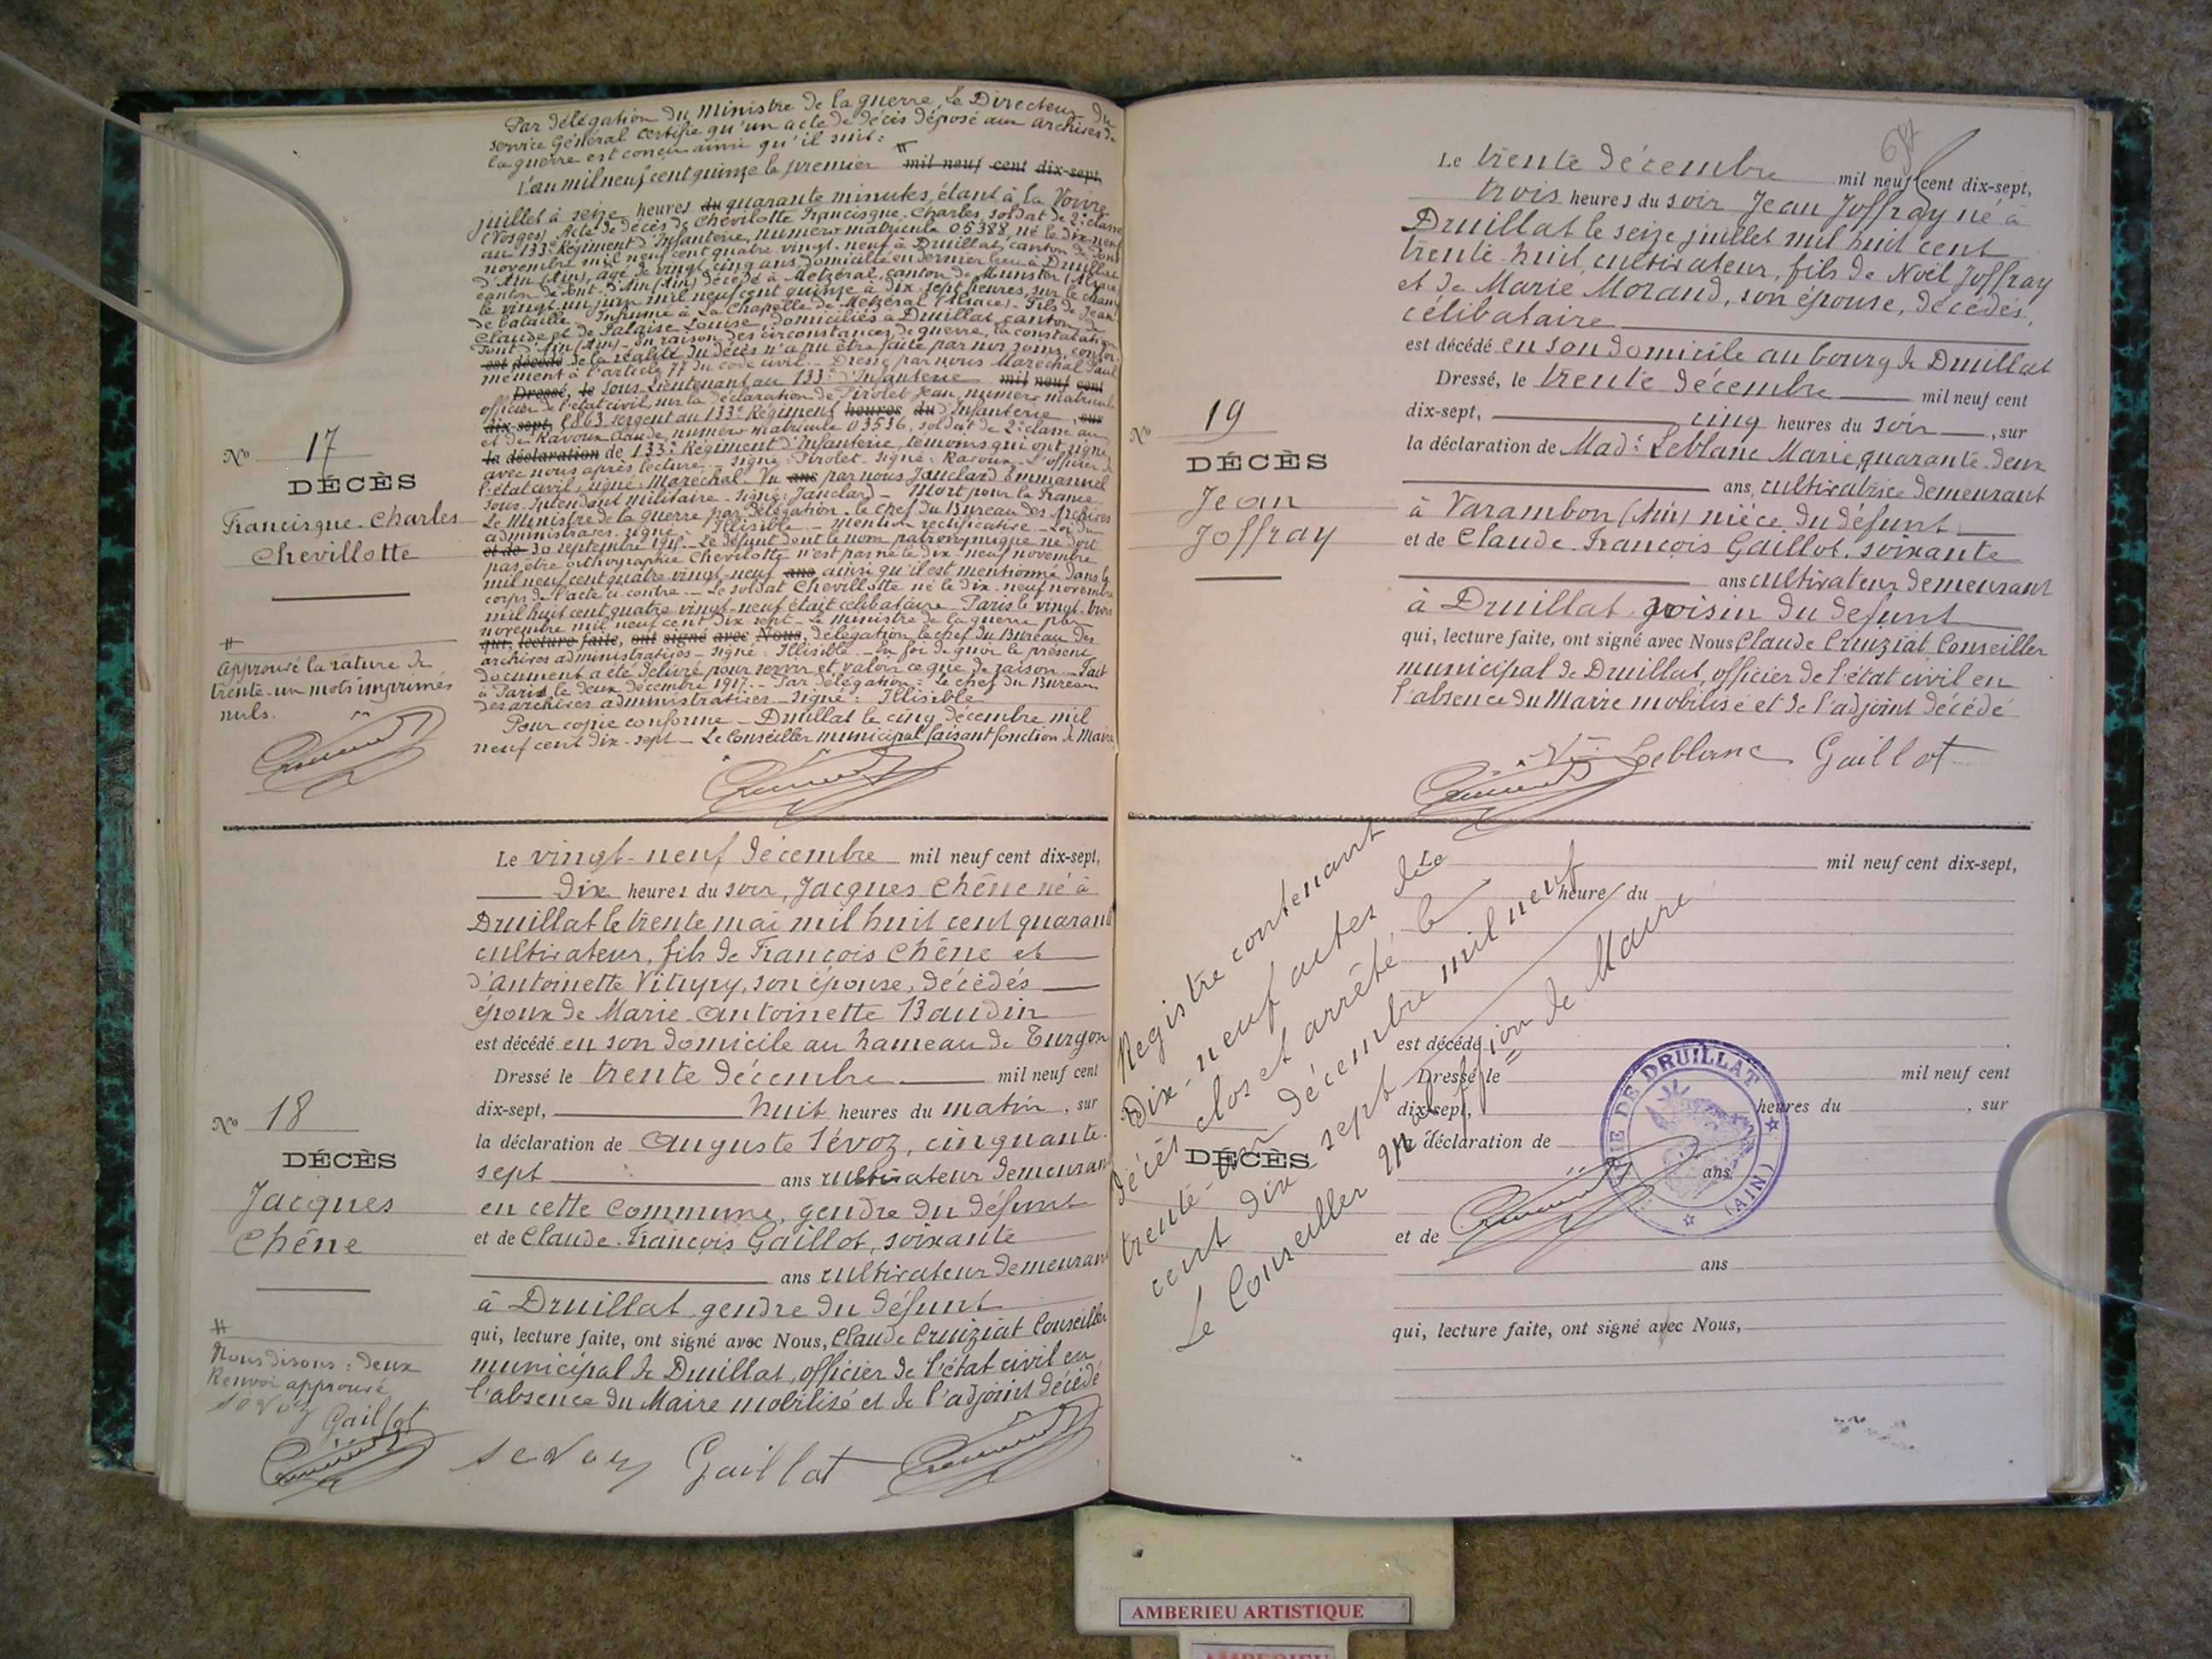 Par délégation du Ministre de la guerre, le Directeur du
service Général certifie qu'un acte de décès déposé aux archives de
la guerre est conçu ainsi qu'il suit :
L'an mil neuf cent quinze le premier # mil neuf cent dix-sept,
juillet à seize heures du quarante minutes, étant à la Vôvre
(Vosges) Acte de décès de Chevilotte Francisque-Charles, soldat de 2e classe
au 133e Régiment d'Infanterie, numéro matricule 05388, né le dix-neuf
novembre mil neuf cent quatre vingt-neuf à Druillat, canton de Pont
d'Ain (Ain), agé de vingt cinq ans, domicilié en dernier lieu à Druillat
canton de Pont-d'Ain (Ain) décédé à Metzéral, canton de Munster (Alsace)
le vingt un juin mil neuf cent quinze à dix-sept heures, sur le champ
de bataille. Inhumé à La Chapelle de Metzéral (Alsace) - Fils de Jean
Claude et de Falaise Louise, domiciliés à Druillat canton de
Pont-d'Ain (Ain) - En raison des circonstances de guerre, la constatation
est décédé de la réalité du décès n'a pu être faite par nos soins, confor-
mément à l'article 77 du code civil. Dressé par nous Maréchal Paul
Dressé, le sous Lieutenant au 133e d'Infanterie mil neuf cent
officier de l'état civil, sur la déclaration de Pirolet Jean, numéro matricule
dix-sept, 8863 sergent au 133e Régiment heures du d'Infanterie, sur
et de Ravoux Claude, numéro matricule 03536, soldat de 2e classe au
la déclaration de 133e Régiment d'Infanterie, témoins qui ont signé
avec nous après lecture - signé : Pirolet - signé : Ravoux - L'officier de
l'état civil, signé : Maréchal - Vu ans par nous Janclard Emmanuel
sous-Intendant militaire - signé : Janclard - Mort pour la France
Le Ministre de la guerre par délégation, le chef du Bureau des Archives
administratives. signé : Illisible - Mention rectificative - Loi du
et de 30 septembre 1915 - Le défunt dont le nom patronymique ne doit
pas être orthographié Chevilotte n'est pas né le dix-neuf novembre
mil neuf cent quatre vingt-neuf ans ainsi qu'il est mentionné dans le
corps de l'acte ci-contre - Le soldat Chevillotte né le dix-neuf novembre
mil huit cent quatre vingt-neuf était célibataire - Paris le vingt-trois
novembre mil neuf cent dix sept - Le Ministre de la guerre par
qui, lecture faite, ont signé avec Nous, délégation, le chef du Bureau des
archives administratives - signé : Illisible - En foi de quoi le présent
document a été délivré pour servir et valoir ce que de raison - Fait
à Paris le deux décembre 1917. - Par délégation : Le chef du Bureau
des archives administratives - signé : Illisible
Pour copie conforme - Druillat le cinq décembre mil
neuf cent dix-sept - Le Conseiller municipal faisant fonction de Maire
No 17
DÉCÈS
Francisque-Charles
Chevillotte
#
Approuvé la rature de
trente-un mots imprimés
nuls.
Le vingt-neuf décembre mil neuf cent dix-sept,
dix heures du soir, Jacques Chêne né à
Druillat le trente mai mil huit cent quarante
cultivateur, fils de François Chêne et
d'Antoinette Vitupy, son épouse, décédés
époux de Marie-Antoinette Baudin
est décédé en son domicile au hameau de Turgon
Dressé le trente décembre mil neuf cent
dix-sept, huit heures du matin, sur
la déclaration de Auguste Sévoz, cinquante-
sept ans cultivateur demeurant
en cette Commune, gendre du défunt
et de Claude-François Gaillot, soixante
ans cultivateur demeurant
à Druillat gendre du défunt
qui, lecture faite, ont signé avec Nous, Claude Cruiziat Conseiller
municipal de Druillat, officier de l'état civil en
l'absence du Maire mobilisé et de l'adjoint décédé
No 18
DÉCÈS
Jacques
Chêne
#
Nous disons : deux
Renvoi approuvé
Sevoz Gaillot
Sevoz Gaillot
Le trente décembre mil neuf cent dix-sept,
trois heures du soir Jean Joffray né à
Druillat le seize juillet mil huit cent
trente-huit, cultivateur, fils de Noël Joffray
et de Marie Morand, son épouse, décédés,
célibataire
est décédé en son domicile au bourg de Druillat
Dressé, le trente décembre mil neuf cent
dix-sept, cinq heures du soir, sur
la déclaration de Made Leblanc Marie, quarante-deux
ans, cultivatrice demeurant
à Varambon (Ain) nièce du défunt
et de Claude-François Gaillot, soixante
ans cultivateur demeurant
à Druillat, voisin du defunt
qui, lecture faite, ont signé avec Nous Claude Cruiziat Conseiller
municipal de Druillat, officier de l'état civil en
l'absence du Maire mobilisé et de l'adjoint décédé
Leblanc Gaillot
No 19
DÉCÈS
Jean
Joffray
Registre contenant
dix-neuf actes de
décès clos et arrêté le
trente-un décembre mil neuf
cent dix sept
Le Conseiller Mal ffion de Maire
Le mil neuf cent dix-sept,
heure du
est décédé
Dressé le mil neuf cent
dix-sept, heures du , sur
la déclaration de
ans
et de
ans
qui, lecture faite, ont signé avec Nous,
DÉCÈS
MAIRIE DE DRUILLAT
(AIN)
AMBERIEU ARTISTIQUE
AMBERIEU